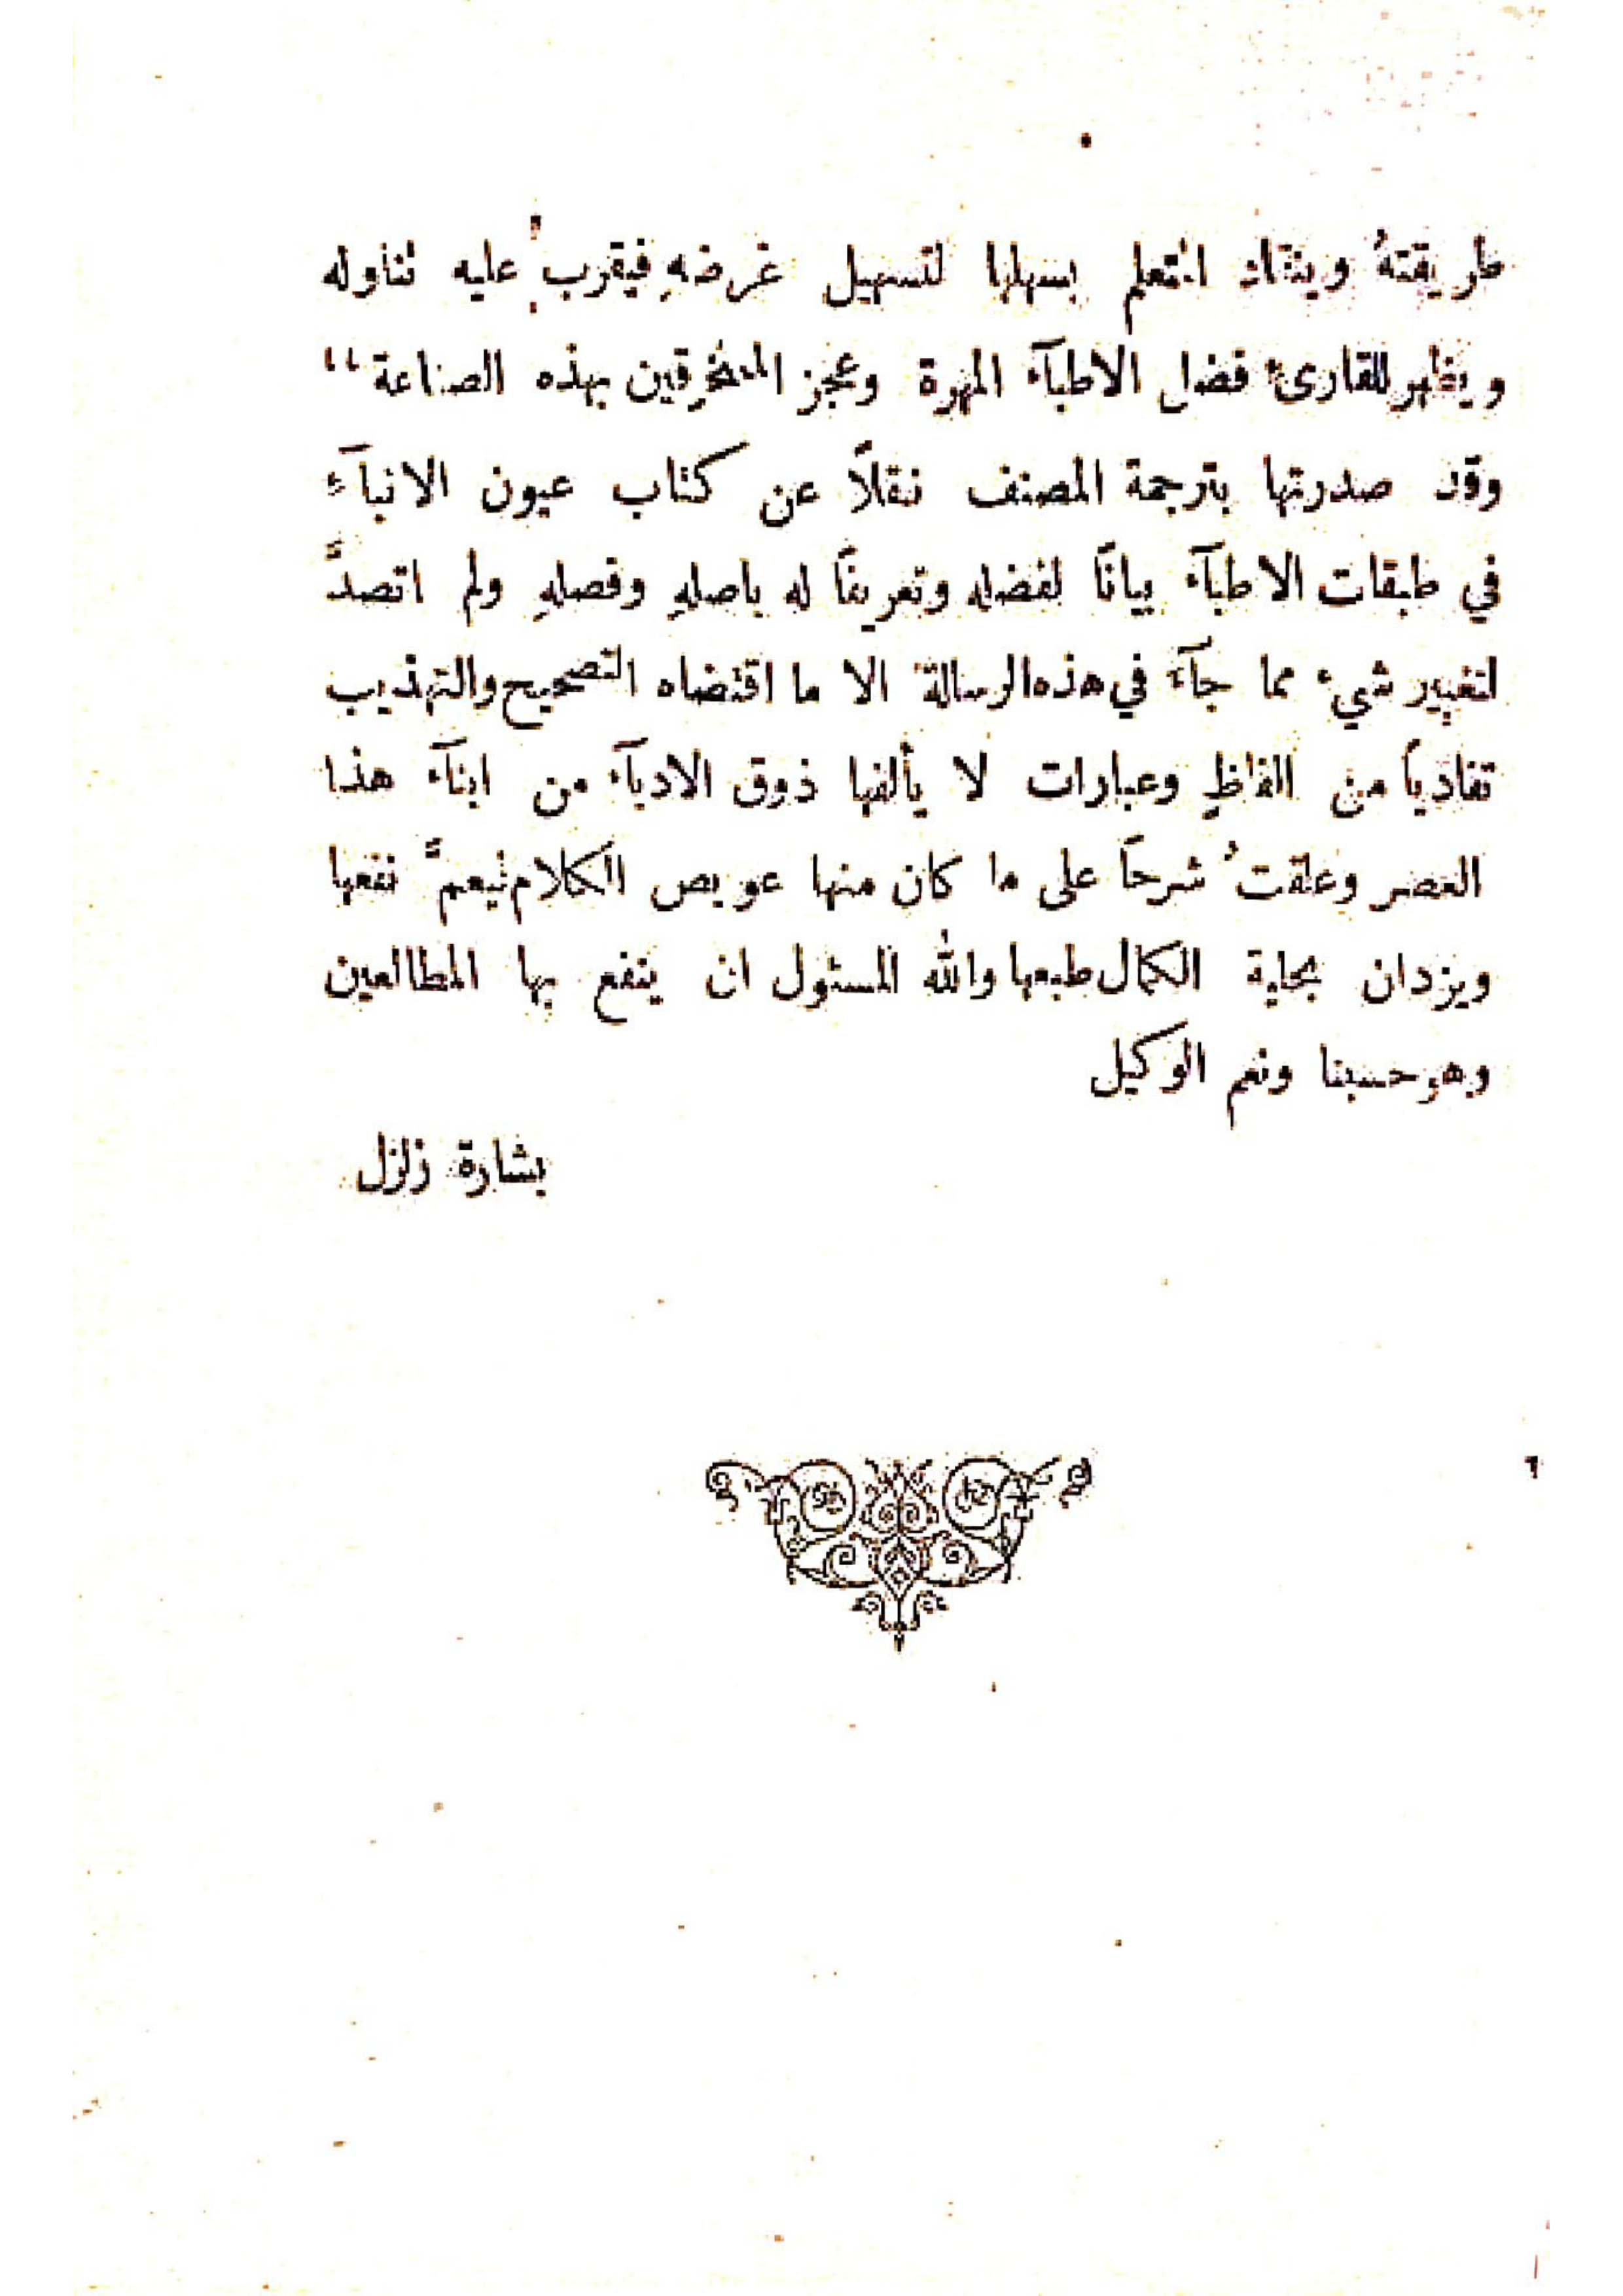 طريقتهُ وينقاد المتعلم بسهلها لتسهيل غرضهِ فيقربُ عليه تناوله
ويظهر للقارئ فضل الاطبآء المهرة وعجز المتخرقين بهذه الصناعة “
وقد صدرتها بترجمة المصنف نقلاً عن كتاب عيون الانبآء
في طبقات الاطبآء بيانًا لفضله وتعريفًا له باصلهِ وفصلهِ ولم اتصدَّ
لتغيير شيء مما جآء في هذه الرسالة الا ما اقتضاه التصحيح والتهذيب
تفاديًا من الفاظٍ وعبارات لا يألفها ذوق الادبآء من ابنآء هذا
العصر وعلقتُ شرحًا على ما كان منها عويص الكلام ليعمَّ نفعها
ويزدان بحلية الكمال طبعها والله المسئول ان ينفع بها المطالعين
وهو حسبنا ونعم الوكيل
بشارة زلزل